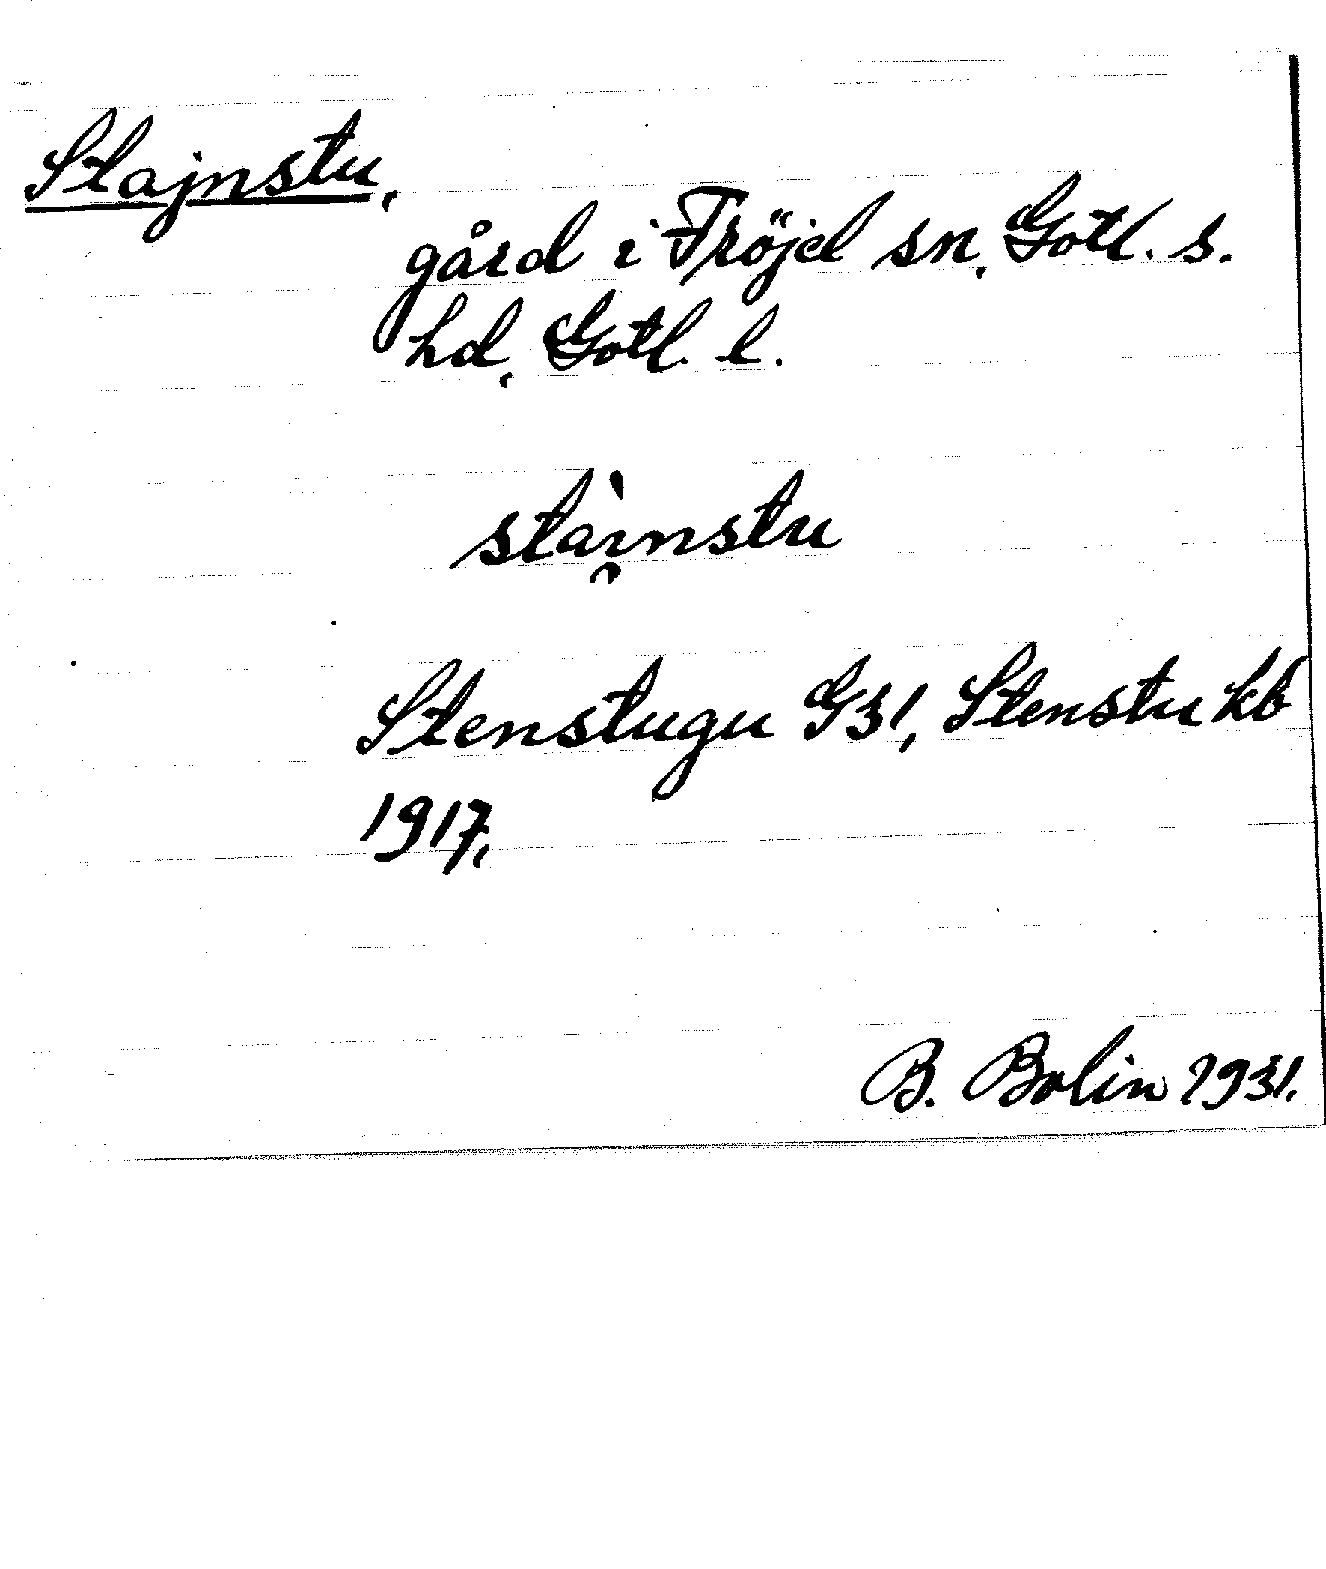 Stajnstu,
gård i Fröjel sn, Gotl. s.
hd, Gotl. l.
stài̯nstu
Stenstugu G31, Stenstu kb
1917.
B. Bolin 1931.